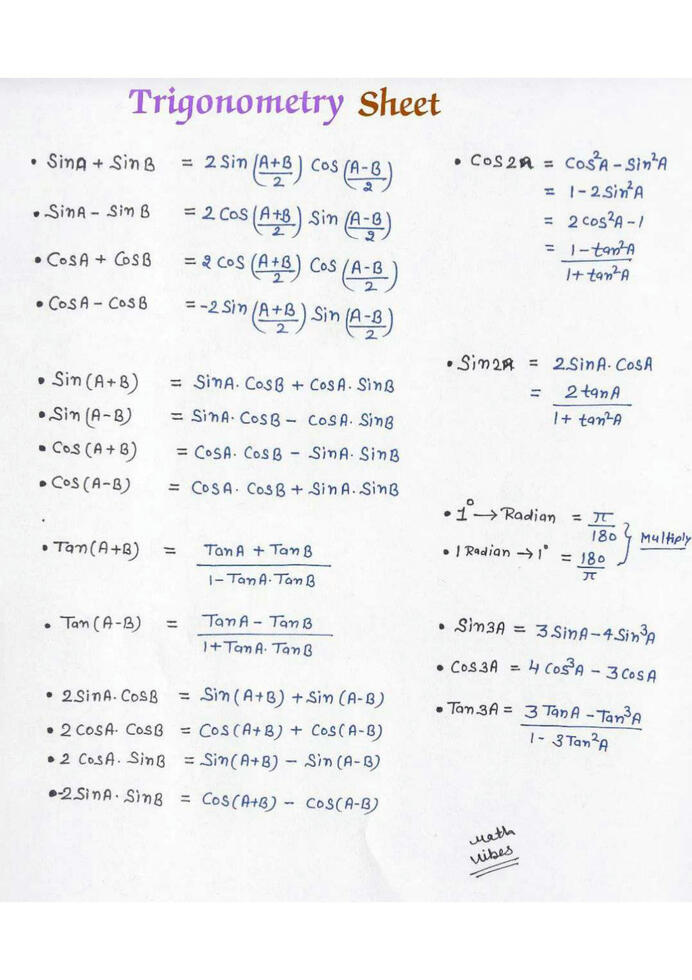 Trigonometry Sheet
• SinA + SinB = 2 Sin (A+B/2) Cos (A-B/2)
• SinA - Sin B = 2 Cos (A+B/2) Sin (A-B/2)
• CosA + CosB = 2 cos (A+B/2) Cos (A-B/2)
• CosA - CosB = -2 Sin (A+B/2) Sin (A-B/2)
• Sin (A+B) = SinA. CosB + CosA. SinB
• Sin (A-B) = SinA. CosB - CosA. SinB
• Cos (A+B) = CosA. CosB - SinA. SinB
• Cos (A-B) = CosA. CosB + SinA. SinB
• Tan(A+B) = TanA + TanB / 1-TanA.TanB
• Tan (A-B) = TanA - TanB / 1+TanA.TanB
• 2SinA. CosB = Sin(A+B) + Sin (A-B)
• 2 CosA. CosB = Cos(A+B) + Cos(A-B)
• 2 CosA. SinB = Sin(A+B) - Sin (A-B)
• -2SinA. SinB = Cos(A+B) - Cos(A-B)
• Cos2A = Cos²A - Sin²A
= 1-2Sin²A
= 2cos²A-1
= 1-tan²A / 1+tan²A
• Sin2A = 2SinA. CosA
= 2tanA / 1+tan²A
• 1° → Radian = π/180
• 1 Radian → 1° = 180/π
} Multiply
• Sin3A = 3SinA-4Sin³A
• Cos3A = 4Cos³A - 3CosA
• Tan3A = 3TanA-Tan³A / 1-3Tan²A
math
vibes